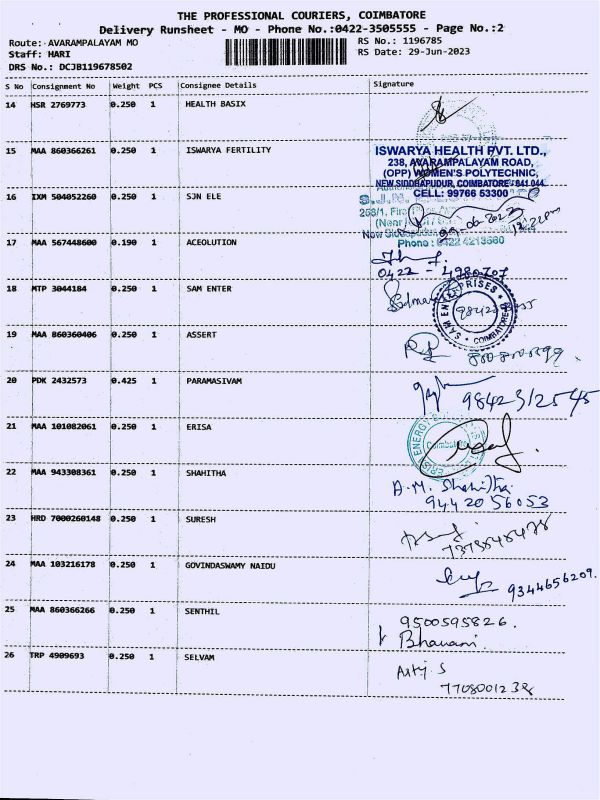 THE PROFESSIONAL COURIERS, COIMBATORE
Delivery Runsheet - MO - Phone No.:0422-3505555 - Page No.:2
Route: AVARAMPALAYAM MO RS No.: 1196785
Staff: HARI RS Date: 29-Jun-2023
DRS No.: DCJB119678502
S No Consignment No Weight PCS Consignee Details Signature
14 HSR 2769773 0.250 1 HEALTH BASIX
15 MAA 860366261 0.250 1 ISWARYA FERTILITY
ISWARYA HEALTH PVT. LTD.,
238, AVARAMPALAYAM ROAD,
(OPP) WOMEN'S POLYTECHNIC,
NEW SIDDHAPUDUR, COIMBATORE - 641 044.
CELL: 99766 53300
16 IXM 504052260 0.250 1 SJN ELE
(Near)
Phone: 0422 4213660
17 MAA 567448600 0.190 1 ACEOLUTION
0422 - 4980707
18 MTP 3044184 0.250 1 SAM ENTER
SAM ENTERPRISES COIMBATORE
19 MAA 860360406 0.250 1 ASSERT
20 PDK 2432573 0.425 1 PARAMASIVAM
9842312545
21 MAA 101082061 0.250 1 ERISA
Coimbatore
22 MAA 943308361 0.250 1 SHAHITHA
A.M. Shahitha.
9442056053
23 HRD 7000260148 0.250 1 SURESH
24 MAA 103216178 0.250 1 GOVINDASWAMY NAIDU
9344656209.
25 MAA 860366266 0.250 1 SENTHIL
9500595826.
Bhavani.
26 TRP 4909693 0.250 1 SELVAM
7708001238